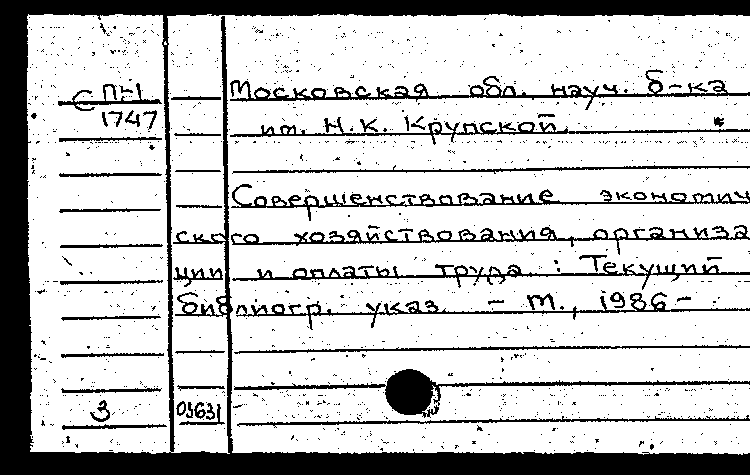 С ПН1
1747
Московская обл. науч. б-ка
им. Н.К. Крупской.
Совершенствование экономич
ского хозяйствования, организа
ции и оплаты труда : Текущий
библиогр. указ. - М., 1986-
3 03631